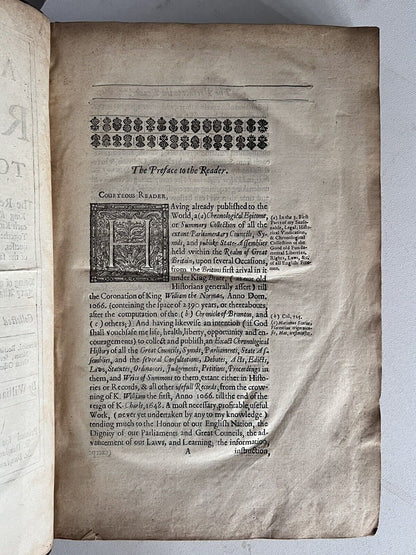 The Preface to the Reader.
COURTEOUS READER,
HAving already published to the
World, a (a) Chronological Epitome,
or Summary Collection of all the
extant Parliamentary Councils, Sy-
nods, and publike State-Assemblies
held within the Realm of Great
Britain, upon several Occasions,
from the Britons first arival in it
under King Brute, (as our old
Historians generally assert) till
the Coronation of King William the Norman, Anno Dom.
1066. (containing the space of 2390 years, or thereabouts,
after the computation of the (b) Chronicle of Bromton, and
(c) others;) And having likewise an intention (if God
shall vouchsafe me life, health, liberty, opportunity and en-
couragements) to collect and publish an Exact Chronological
History of all the Great Councils, Synods, Parliaments, State As-
semblies, and the several Consultations, Debates, Acts, Edicts,
Laws, Statutes, Ordinances, Judgments, Petitions, Proceedings in
them, and Writs of Summons to them, extant either in Histo-
ries or Records, & all other usefull Records, from the crown-
ing of K. William the first, Anno 1066. till the end of the
reign of K. Charls, 1648. A most necessary, profitable, useful
Work, (never yet undertaken by any to my knowledge)
tending much to the Honour of our English Nation, the
Dignity of our Parliaments and Great Councils, the ad-
vancement of our Laws, and Learning, the information,
A
instruction,
(a) In the 3. first
Parts of my Seaso-
nable, Legal, Histo-
rical Vindication,
& Chronological
Collection of the
Good old Funda-
mental Liberties,
Rights, Laws, &c.
of all English Free-
men.
(b) Col. 725.